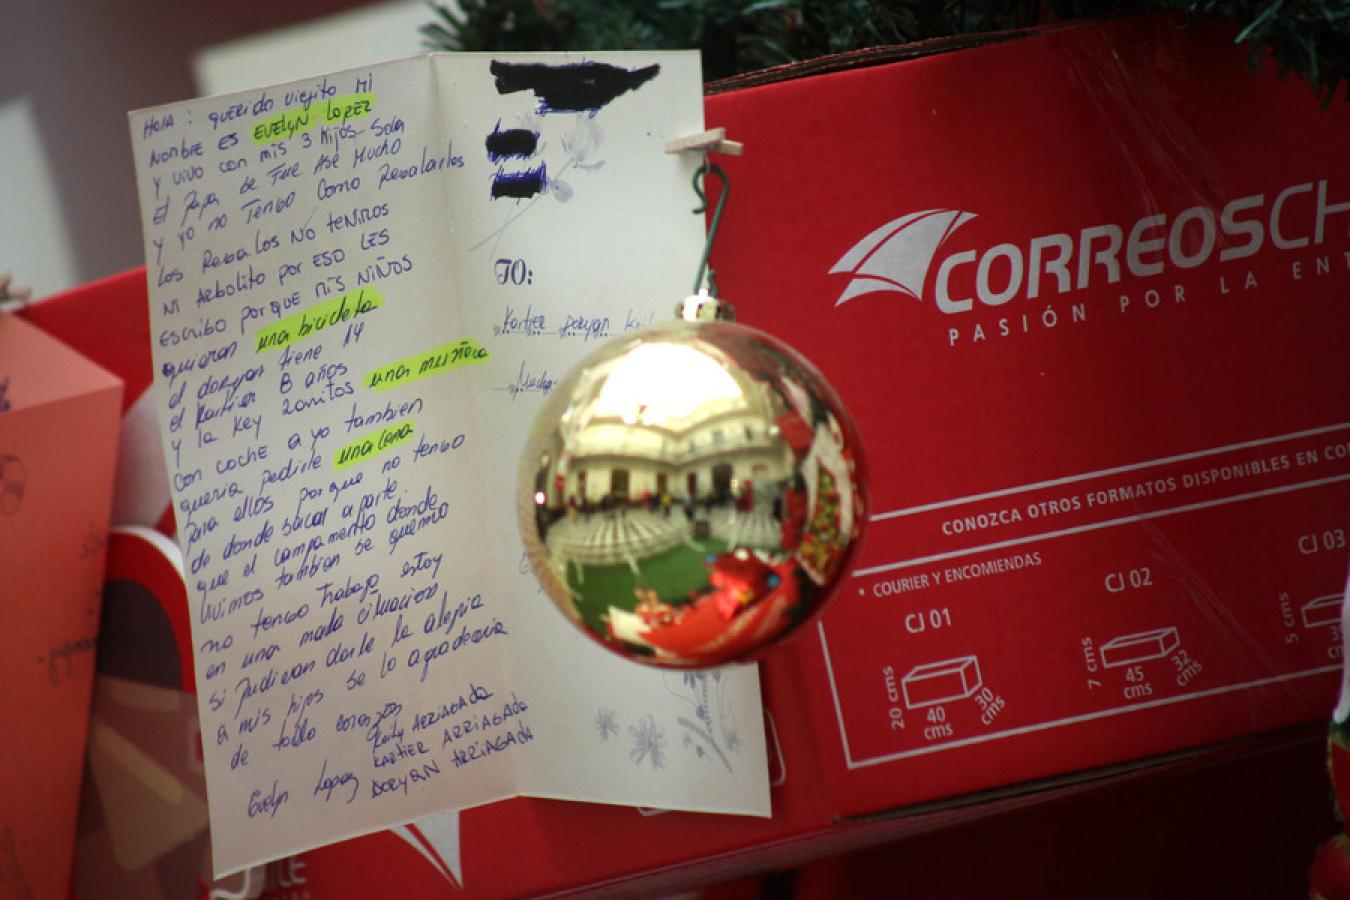 HOLA : QUERIDO Viejito Mi
Nombre ES EVELYN LOPEZ
Y vivo con mis 3 Hijos Sola
El Papa se Fue ASE Mucho
Y Yo no Tengo Como Regalarles
Los Regalos NO teNMOS
Ni ARbolito por ESO LES
Escribo porque Mis NiÑOS
quieren una bicicleta
el doryan tiene 14
el Kartier 8 años
y la Key 2 añitos una muñeca
con coche a yo tambien
queria pedirle una cena
para ellos porque no tengo
de donde sacar a parte
que el campamento donde
vivimos tambien se quemo
no tengo trabajo estoy
en una mala cituacion
si pudieran darle la alegria
a mis hijos se lo agradeceria
de todo corazon
ARRIAGADA
Evelyn Lopez KARTIER ARRIAGADA
DORYAN ARRIAGADA
TO:
Kartier Doryan
CORREOSCH
PASIÓN POR LA ENT
CONOZCA OTROS FORMATOS DISPONIBLES EN CO
• COURIER Y ENCOMIENDAS
CJ 01
CJ 02
CJ 03
20 cms
40 cms
30 cms
7 cms
45 cms
32 cms
5 cms